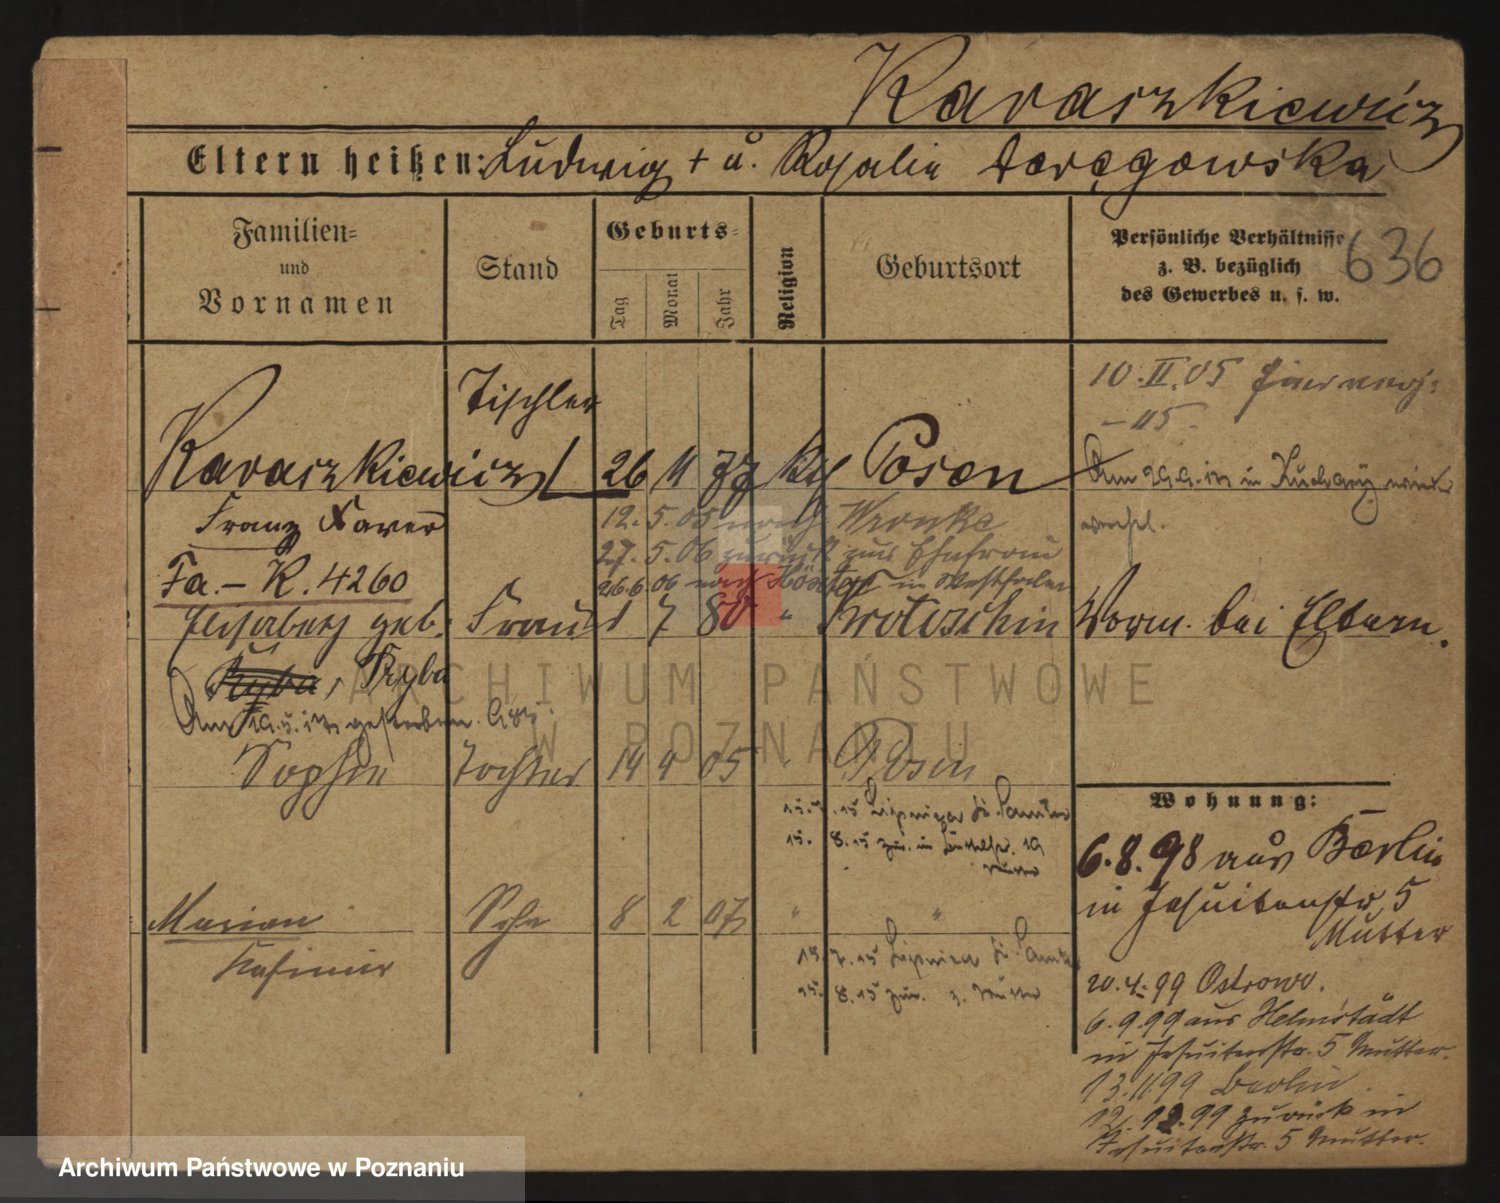 Karaszkiewicz
Eltern heißen: Ludwig + u. Rosalie Doręgowska
Familien-
und
Vornamen
Stand
Geburts-
Tag
Monat
Jahr
Religion
Geburtsort
Persönliche Verhältnisse
z. B. bezüglich
des Gewerbes u. s. w.
636
10.II.05
Tischler
Karaszkiewicz 26 11 77 kth Posen
Franz Xaver
12.5.05 nach Wronke
27.5.06 zurück zur Ehefrau
26.6.06 nach in Westfalen
Fa.- K. 4260
Elisabeth geb. Frau 1 7 80 " Krotoschin Vorm. bei Eltern.
Ryba, Tryba
Am gestorben.
Sophie Tochter 14 4 05 " Posen
15.7.15 Lipnica Kr. Samter
15. 8.15 zur. in 19
Mutter
Marian Sohn 8 2 07 " "
Kasimir
15.7.15 Lipnica Kr. Samter
15. 8.15 zur. z. Mutter
Wohnung:
6.8.98 aus Berlin
in Jesuitenstr 5
Mutter
20.4.99 Ostrowo.
6.9.99 aus Helmstädt
in Jesuitenstr. 5 Mutter.
13.11.99 Berlin.
12.12.99 zurück in
Jesuitenstr. 5 Mutter.
ARCHIWUM PAŃSTWOWE
W POZNANIU
Archiwum Państwowe w Poznaniu